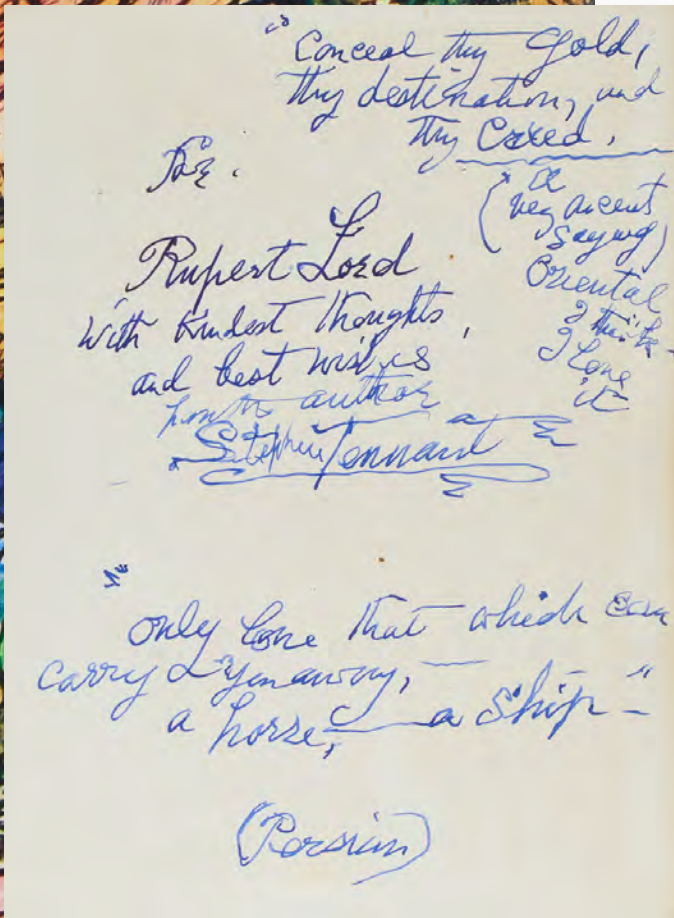 "Conceal thy Gold,
thy destination, and
thy Creed.
For.
(a
very ancient
Saying)
Oriental
I think -
I love
it
Rupert Lord
with kindest thoughts,
and best wishes
from the author
Stephen Tennant
"only love that which can
carry you away, —
a horse, — a ship - "
(Persian)